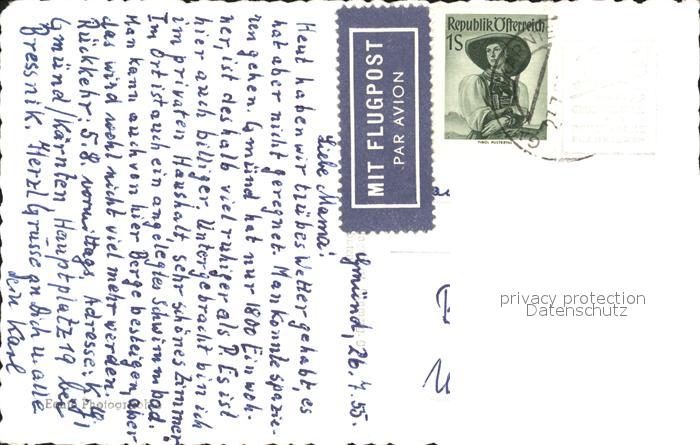 Gmünd, 26.7.55.
Liebe Mama!
Heut haben wir trübes Wetter gehabt, es
hat aber nicht geregnet. Man konnte spazie-
ren gehen. Gmünd hat nur 1800 Einwoh-
ner, ist deshalb viel ruhiger als P. Es ist
hier auch billiger. Untergebracht bin ich
im privaten Haushalt, sehr schönes Zimmer.
Im Ort ist auch ein angelegtes Schwimmbad.
Man kann auch von hier Berge besteigen, aber
das wird wohl nicht viel mehr werden.
Rückkehr: 5.8 vormittags. Adresse: K. G.,
Gmünd/Kärnten Hauptplatz 19 bei
Pressnik. Herzl. Grüsse an Dich u. alle
Dein Karl
MIT FLUGPOST
PAR AVION
Republik Österreich
1S
TIROL PUSTERTAL
Echte Photographie
privacy protection
Datenschutz